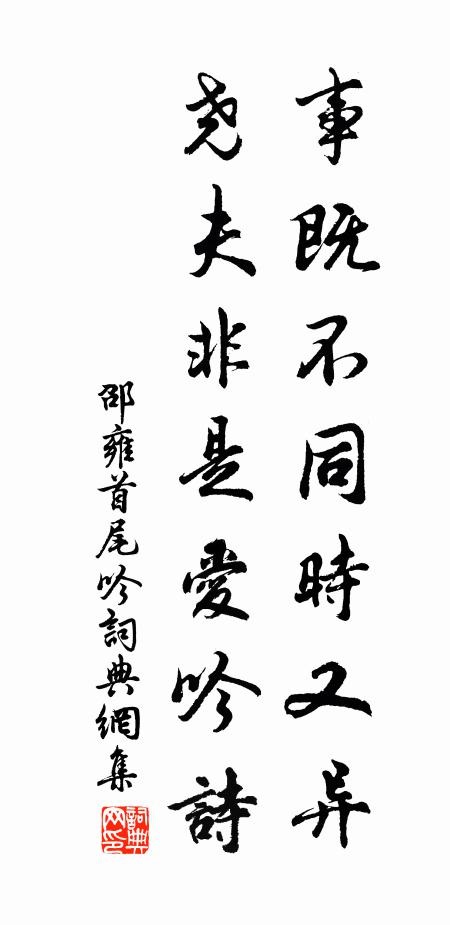 事既不同時又异
尧夫非是愛吟詩
邵雍首尾吟詞典網集
詞典网印